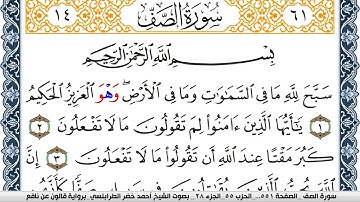 ٦١ سُورَةُ الصَّفِّ ١٤
بِسْمِ اللَّهِ الرَّحْمَٰنِ الرَّحِيمِ
سَبَّحَ لِلَّهِ مَا فِي السَّمَٰوَٰتِ وَمَا فِي الْأَرْضِ وَهْوَ الْعَزِيزُ الْحَكِيمُ
١ يَٰأَيُّهَا الَّذِينَ ءَامَنُوا لِمَ تَقُولُونَ مَا لَا تَفْعَلُونَ ٢
كَبُرَ مَقْتًا عِندَ اللَّهِ أَن تَقُولُوا مَا لَا تَفْعَلُونَ ٣ إِنَّ
اللَّهَ يُحِبُّ الَّذِينَ يُقَٰتِلُونَ فِي سَبِيلِهِ صَفًّا كَأَنَّهُم
سورة الصف _الصفحة ٥٥١_ الحزب ٥٥_الجزء ٢٨_ بصوت الشيخ أحمد خضر الطرابلسي _برواية قالون عن نافع